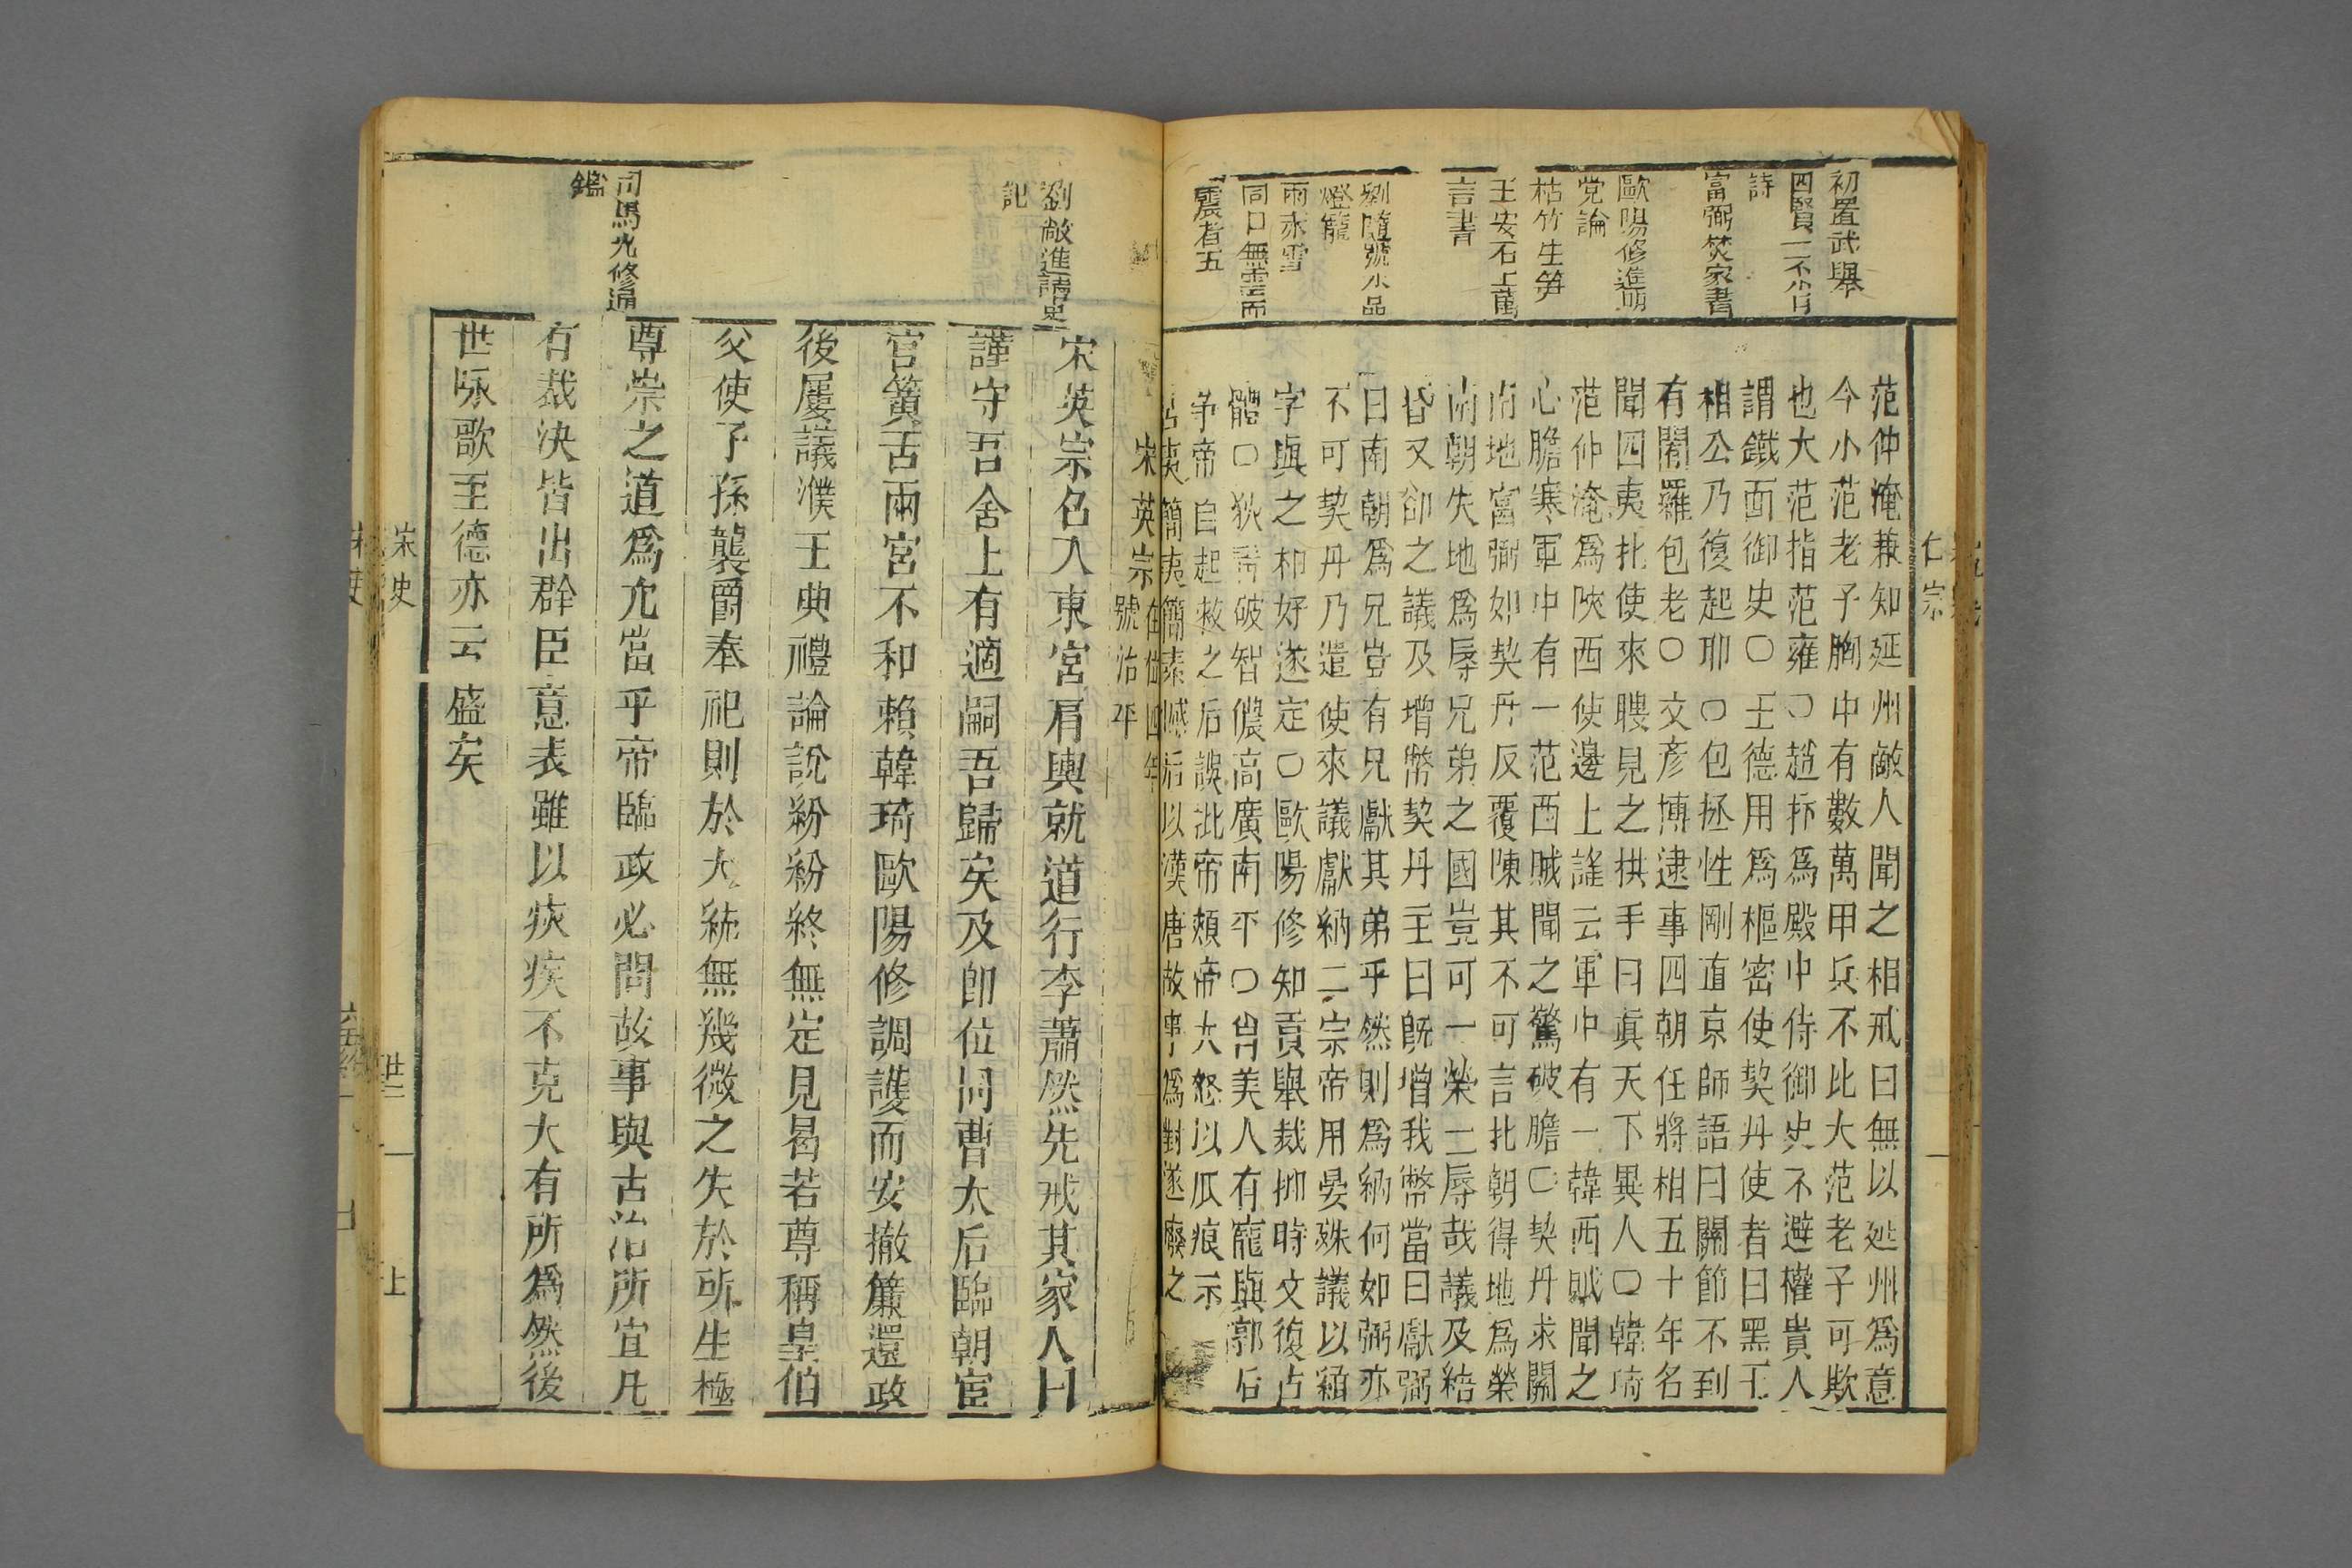 初置武舉
四賢一不肖
詩
富弼焚家書
歐陽修進朋
党論
枯竹生笋
王安石上萬
言書
劉隨號水晶
燈籠
雨赤雪
同日無雲而
震者五
仁宗
范仲淹兼知延州敵人聞之相戒曰無以延州爲意
今小范老子胸中有數萬甲兵不比大范老子可欺
也大范指范雍〇趙抃爲殿中侍御史不避權貴人
謂鐵面御史〇王德用爲樞密使契丹使者曰黑王
相公乃復起耶〇包拯性剛直京師語曰關節不到
有閻羅包老〇文彥博逮事四朝任將相五十年名
聞四夷北使來聘見之拱手曰眞天下異人〇韓琦
范仲淹爲陜西使邊上謠云軍中有一韓西賊聞之
心膽寒軍中有一范西賊聞之驚破膽〇契丹求關
南地富弼如契丹反覆陳其不可言北朝得地爲榮
南朝失地爲辱兄弟之國豈可一榮一辱哉議及結
昏又卻之議及增幣契丹主曰旣增我幣當曰獻弼
曰南朝爲兄豈有兄獻其弟乎然則爲納何如弼亦
不可契丹乃遣使來議獻納二宗帝用晏殊議以納
字與之和好遂定〇歐陽修知貢舉裁抑時文復古
體〇狄靑破智儂高廣南平〇尙美人有寵與郭后
争帝自起救之后誤批帝頰帝大怒以爪痕示
呂夷簡夷簡素憾后以漢唐故事爲對遂廢之
宋英宗在位四年
號治平
劉敞進講史
記
司馬光修通
鑑
宋英宗名入東宮肩輿就道行李蕭然先戒其家人曰
謹守吾舍上有適嗣吾歸矣及卽位同曹太后臨朝宦
官簧舌兩宮不和賴韓琦歐陽修調護而安撤簾還政
後屢議濮王典禮論說紛紛終無定見曷若尊稱皇伯
父使子孫襲爵奉祀則於大統無幾微之失於所生極
尊崇之道爲允當乎帝臨政必問故事與古治所宜凡
有裁決皆出群臣意表雖以疾疾不克大有所爲然後
世咏歌至德亦云盛矣
宋史
上